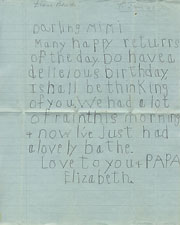 Darling Mimi
Many happy returns
of the day. Do have a
delicious birthday
I shall be thinking
of you. We had a lot
of rain this morning
& now I've Just had
a lovely bathe.
Love to you & PAPA
Elizabeth